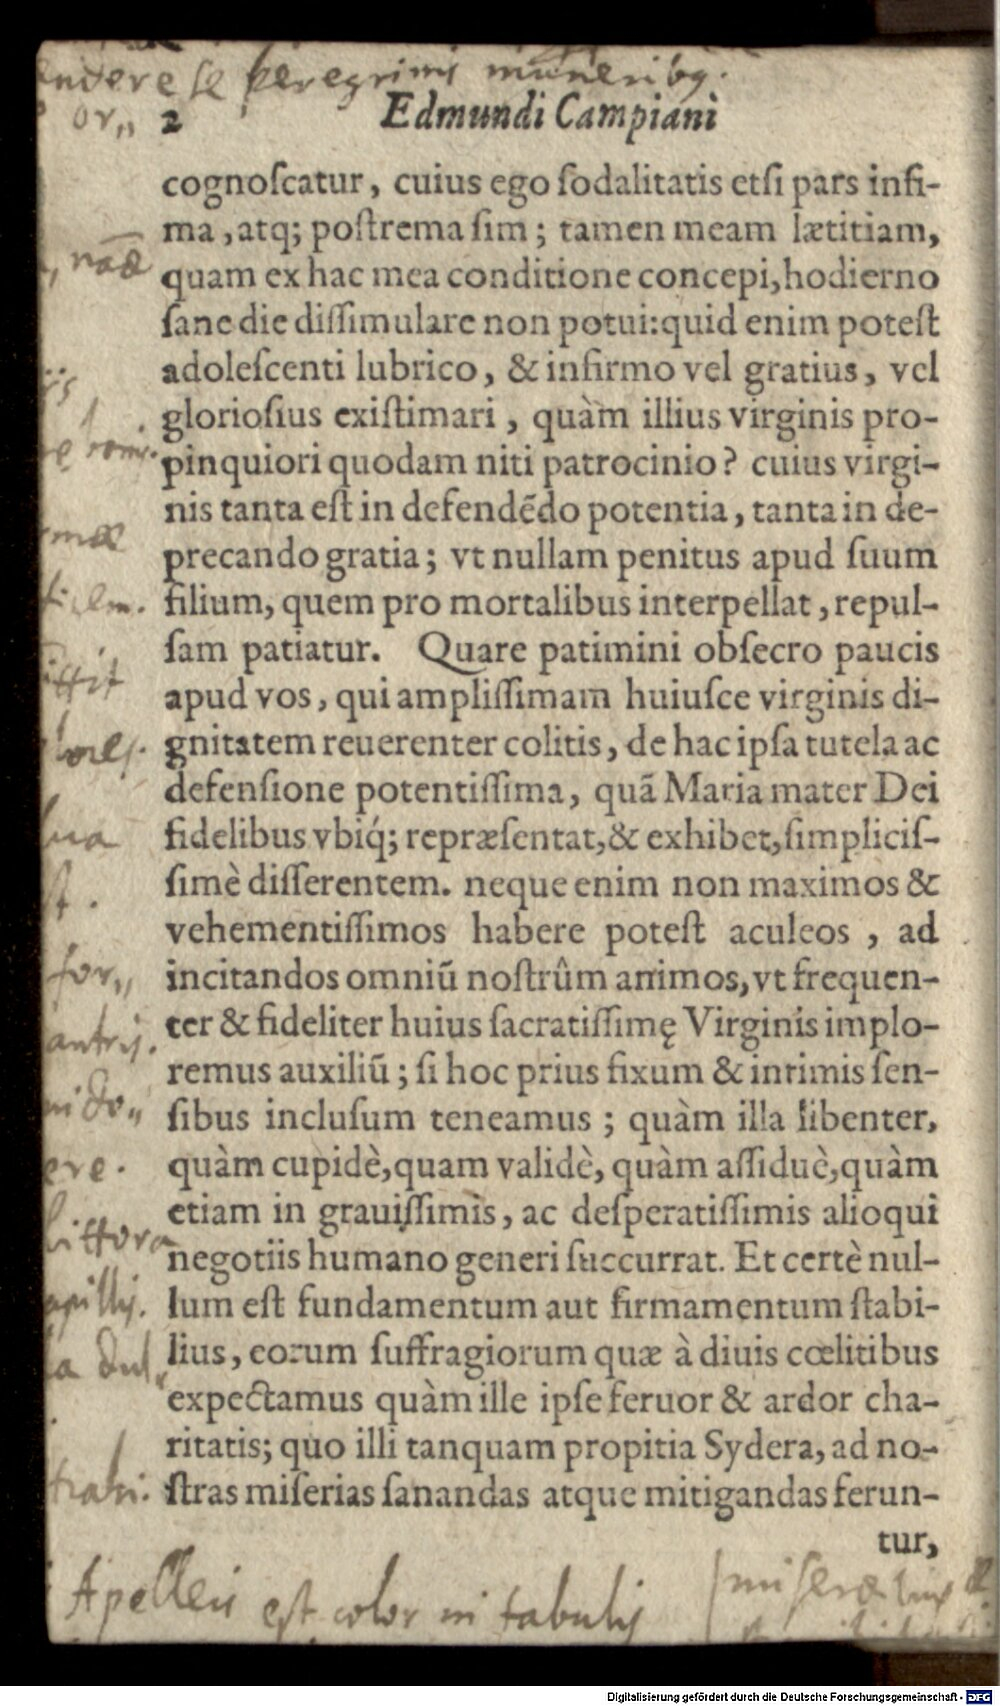 endere se peregrinis muneribq.
or„ 2 Edmundi Campiani
cognoſcatur, cuius ego ſodalitatis etſi pars infi-
ma, atq; poſtrema ſim; tamen meam lætitiam,
quam ex hac mea conditione concepi, hodierno
ſane die diſſimulare non potui: quid enim poteſt
adoleſcenti lubrico, & infirmo vel gratius, vel
glorioſius exiſtimari, quàm illius virginis pro-
pinquiori quodam niti patrocinio? cuius virgi-
nis tanta eſt in defendẽdo potentia, tanta in de-
precando gratia; vt nullam penitus apud ſuum
filium, quem pro mortalibus interpellat, repul-
ſam patiatur. Quare patimini obſecro paucis
apud vos, qui ampliſſimam huiuſce virginis di-
gnitatem reuerenter colitis, de hac ipſa tutela ac
defenſione potentiſſima, quã Maria mater Dei
fidelibus vbiq́; repræſentat, & exhibet, ſimpliciſ-
ſimè diſſerentem. neque enim non maximos &
vehementiſſimos habere poteſt aculeos, ad
incitandos omniũ noſtrûm animos, vt frequen-
ter & fideliter huius ſacratiſſimę Virginis implo-
remus auxiliũ; ſi hoc prius fixum & intimis ſen-
ſibus incluſum teneamus; quàm illa libenter,
quàm cupidè, quam validè, quàm aſſiduè, quàm
etiam in grauiſſimis, ac deſperatiſſimis alioqui
negotiis humano generi ſuccurrat. Et certè nul-
lum eſt fundamentum aut firmamentum ſtabi-
lius, eorum ſuffragiorum quæ à diuis cœlitibus
expectamus quàm ille ipſe feruor & ardor cha-
ritatis; quo illi tanquam propitia Sydera, ad no-
ſtras miſerias ſanandas atque mitigandas ferun-
tur,
Apelleis est color in tabulis
Digitalisierung gefördert durch die Deutsche Forschungsgemeinschaft - DFG